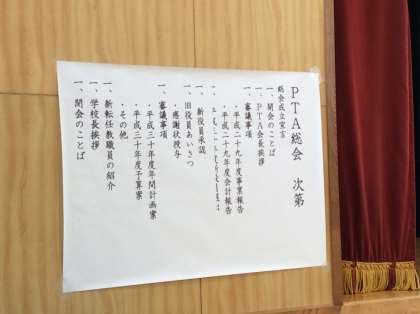 PTA総会　次第
総会成立宣言
一、開会のことば
一、PTA会長挨拶
一、審議事項
・平成二十九年度事業報告
・平成二十九年度会計報告
一、新役員承認
一、旧役員あいさつ
・感謝状授与
一、審議事項
・平成三十年度年間計画案
・平成三十年度予算案
・その他
一、新転任教職員の紹介
一、学校長挨拶
一、閉会のことば